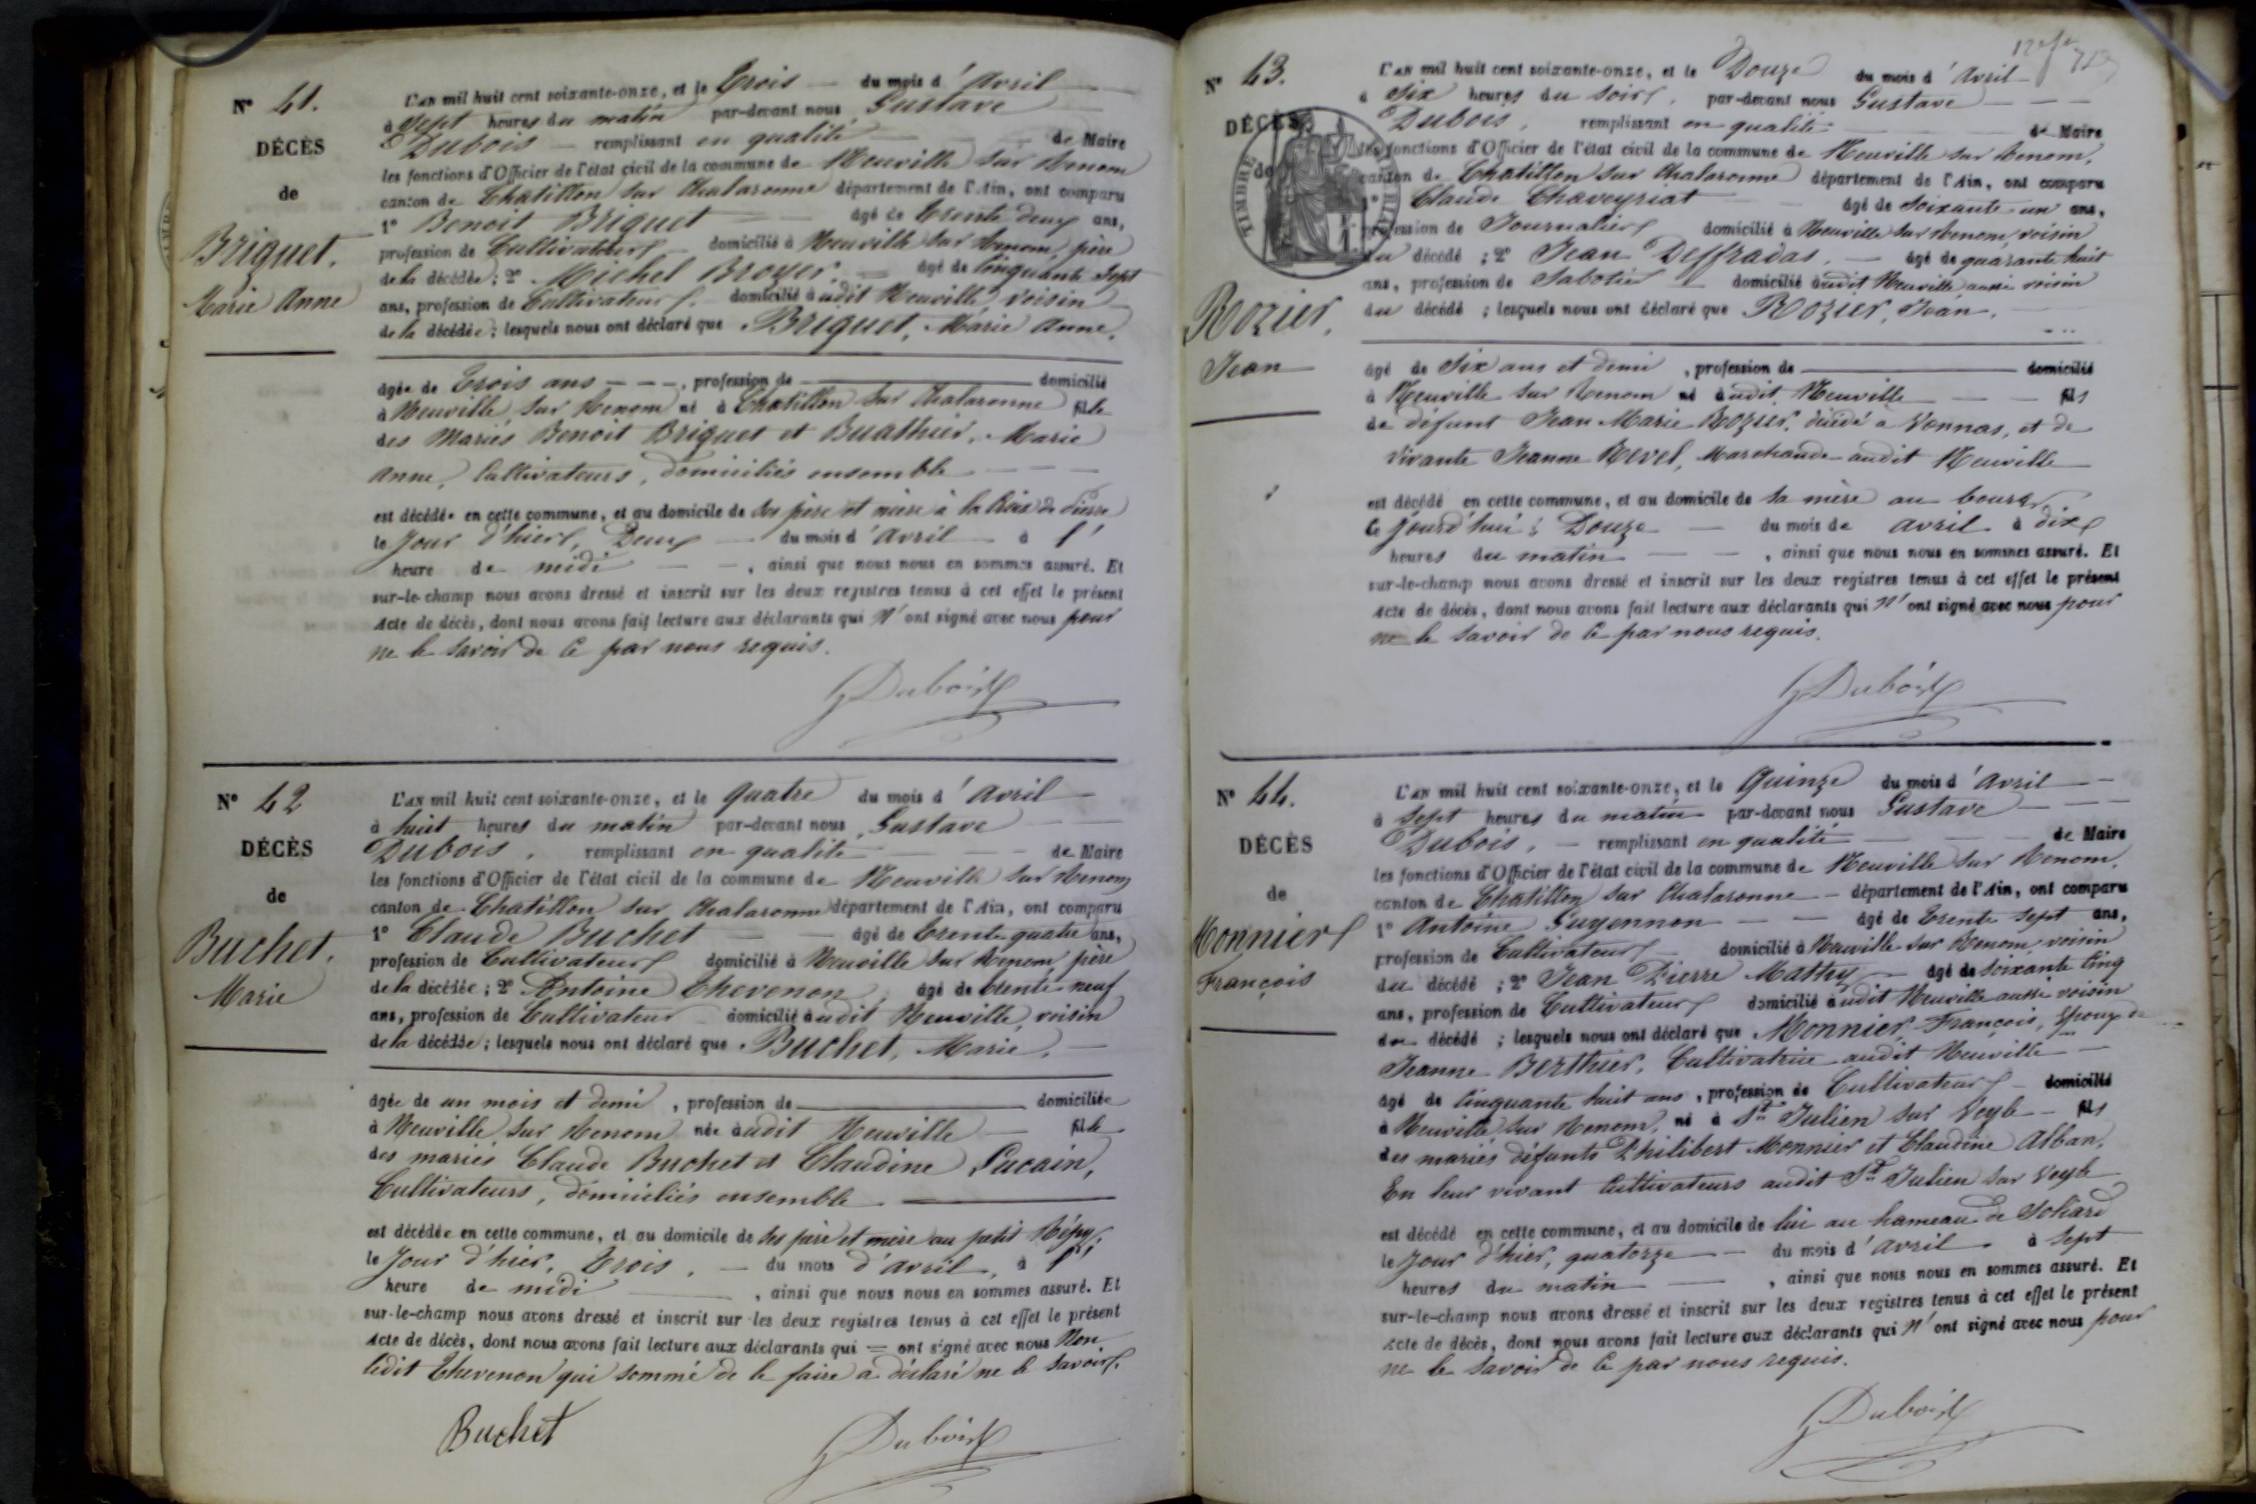 N° 41.
DÉCÈS
de
Briquet.
Marie Anne
L'AN mil huit cent soixante-onze, et le Trois — du mois d'Avril
à Sept heures du matin par-devant nous Gustave
Dubois — remplissant en qualité de Maire
les fonctions d'Officier de l'état civil de la commune de Neuville sur Renom
canton de Chatillon sur Chalaronne département de l'Ain, ont comparu
1° Benoit Briquet âgé de Trente deux ans,
profession de Cultivateur domicilié à Neuville sur Renom, père
de la décédée ; 2° Michel Broyer — âgé de Cinquante Sept
ans, profession de Cultivateur domicilié audit Neuville voisin
de la décédée ; lesquels nous ont déclaré que Briquet, Marie Anne,
âgée de Trois ans — — —, profession de domicilié
à Neuville sur Renom né à Chatillon sur Chalaronne fille
des Mariés Benoit Briquet et Buathier, Marie
Anne, Cultivateurs, domiciliés ensemble — — —
est décédée en cette commune, et au domicile de ses père et mère à la Croix de Pierre
le Jour d'hier, Deux — du mois d'Avril — à l'
heure de midi — —, ainsi que nous nous en sommes assuré. Et
sur-le-champ nous avons dressé et inscrit sur les deux registres tenus à cet effet le présent
Acte de décès, dont nous avons fait lecture aux déclarants qui n'ont signé avec nous pour
ne le savoir de ce par nous requis.
G Dubois
N° 42
DÉCÈS
de
Buchet.
Marie
L'AN mil huit cent soixante-onze, et le quatre du mois d'Avril
à huit heures du matin par-devant nous Gustave
Dubois, remplissant en qualité — de Maire
les fonctions d'Officier de l'état civil de la commune de Neuville sur Renom
canton de Chatillon sur Chalaronne département de l'Ain, ont comparu
1° Claude Buchet — — âgé de Trente quatre ans,
profession de Cultivateur domicilié à Neuville sur Renom, père
de la décédée ; 2° Antoine Thevenon, âgé de trente neuf
ans, profession de Cultivateur domicilié audit Neuville, voisin
de la décédée ; lesquels nous ont déclaré que Buchet, Marie, —
âgée de un mois et demi, profession de domiciliée
à Neuville sur Renom née audit Neuville — fille
des mariés Claude Buchet et Claudine Lucain,
Cultivateurs, domiciliés ensemble
est décédée en cette commune, et au domicile de ses père et mère au petit
le Jour d'hier, Trois, — du mois d'avril, à l'
heure de midi, ainsi que nous nous en sommes assuré. Et
sur-le-champ nous avons dressé et inscrit sur les deux registres tenus à cet effet le présent
Acte de décès, dont nous avons fait lecture aux déclarants qui = ont signé avec nous Non
ledit Thevenon qui sommé de le faire a déclaré ne le savoir.
Buchet
G Dubois
N° 43.
DÉCÈS
de
TIMBRE
Rozier,
Jean
L'AN mil huit cent soixante-onze, et le Douze du mois d'Avril
à Six heures du soir, par-devant nous Gustave — — —
Dubois, remplissant en qualité de Maire
les fonctions d'Officier de l'état civil de la commune de Neuville sur Renom,
canton de Chatillon sur Chalaronne département de l'Ain, ont comparu
1° Claude Chaveyriat âgé de Soixante un ans,
profession de Journalier domicilié à Neuville sur Renom, voisin
du décédé ; 2° Jean Deffradas, — âgé de quarante huit
ans, profession de Sabotier domicilié audit Neuville aussi voisin
du décédé ; lesquels nous ont déclaré que Rozier, Jean,
âgé de Six ans et demi, profession de domicilié
à Neuville sur Renom né audit Neuville — — fils
de défunt Jean Marie Rozier, décédé à Vonnas, et de
vivante Jeanne Revel, Marchande audit Neuville
est décédé en cette commune, et au domicile de sa mère au bourg,
le Jourd'hui Douze — du mois de avril à dix
heures du matin — —, ainsi que nous nous en sommes assuré. Et
sur-le-champ nous avons dressé et inscrit sur les deux registres tenus à cet effet le présent
Acte de décès, dont nous avons fait lecture aux déclarants qui n'ont signé avec nous pour
ne le savoir de ce par nous requis.
G Dubois
N° 44.
DÉCÈS
de
Monnier
François
L'AN mil huit cent soixante-onze, et le Quinze du mois d'Avril —
à Sept heures du matin par-devant nous Gustave — — —
Dubois, — remplissant en qualité — de Maire
les fonctions d'Officier de l'état civil de la commune de Neuville sur Renom,
canton de Chatillon sur Chalaronne — département de l'Ain, ont comparu
1° Antoine Guyennon — — âgé de Trente sept ans,
profession de Cultivateur domicilié à Neuville sur Renom voisin
du décédé ; 2° Jean Pierre Mathy — âgé de soixante Cinq
ans, profession de Cultivateur domicilié audit Neuville aussi voisin
du décédé ; lesquels nous ont déclaré que Monnier, François, Epoux de
Jeanne Berthier, Cultivatrice audit Neuville —
âgé de Cinquante huit ans, profession de Cultivateur — domicilié
à Neuville sur Renom, né à St Julien sur Veyle — fils
des mariés défunts Philibert Monnier et Claudine Alban,
En leur vivant Cultivateurs audit St Julien sur Veyle
est décédé en cette commune, et au domicile de lui au hameau de
le Jour d'hier, quatorze — du mois d'avril à Sept
heures du matin —, ainsi que nous nous en sommes assuré. Et
sur-le-champ nous avons dressé et inscrit sur les deux registres tenus à cet effet le présent
Acte de décès, dont nous avons fait lecture aux déclarants qui n'ont signé avec nous pour
ne le savoir de ce par nous requis.
G Dubois